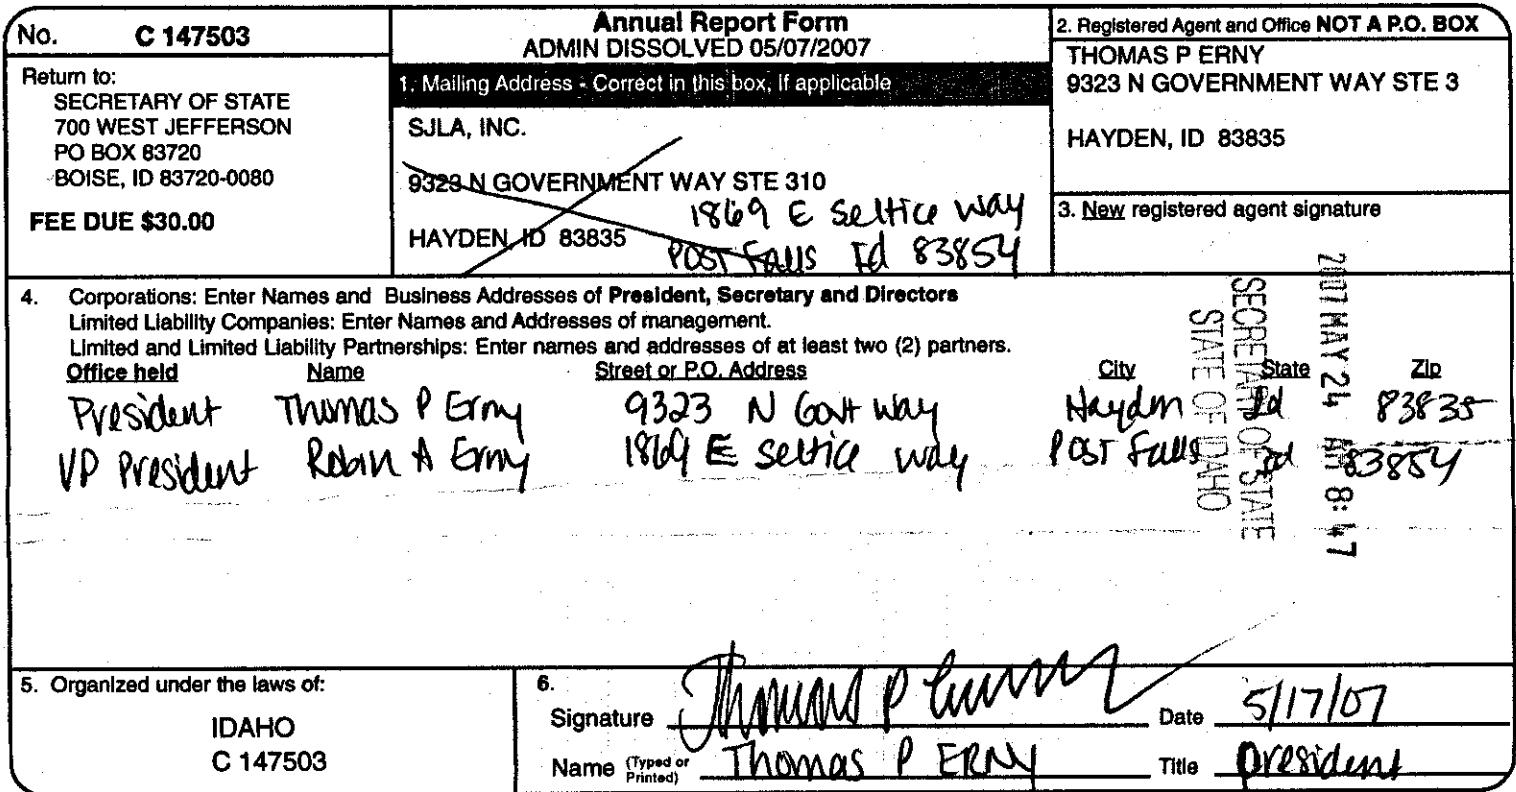 No. C 147503
Return to:
SECRETARY OF STATE
700 WEST JEFFERSON
PO BOX 83720
BOISE, ID 83720-0080
FEE DUE $30.00
Annual Report Form
ADMIN DISSOLVED 05/07/2007
1. Mailing Address - Correct in this box, if applicable
SJLA, INC.
9323 N GOVERNMENT WAY STE 310
HAYDEN, ID 83835
1869 E Seltice Way
POST Falls Id 83854
2. Registered Agent and Office NOT A P.O. BOX
THOMAS P ERNY
9323 N GOVERNMENT WAY STE 3
HAYDEN, ID 83835
3. New registered agent signature
4. Corporations: Enter Names and Business Addresses of President, Secretary and Directors
Limited Liability Companies: Enter Names and Addresses of management.
Limited and Limited Liability Partnerships: Enter names and addresses of at least two (2) partners.
Office held Name Street or P.O. Address City State Zip
President Thomas P Erny 9323 N Govt Way Hayden Id 83835
VP President Robin A Erny 1869 E Seltice Way POST Falls Id 83854
2007 MAY 24 AM 8:47
SECRETARY OF STATE
STATE OF IDAHO
5. Organized under the laws of:
IDAHO
C 147503
6.
Signature Thomas P Erny Date 5/17/07
Name (Typed or Printed) Thomas P ERNY Title president